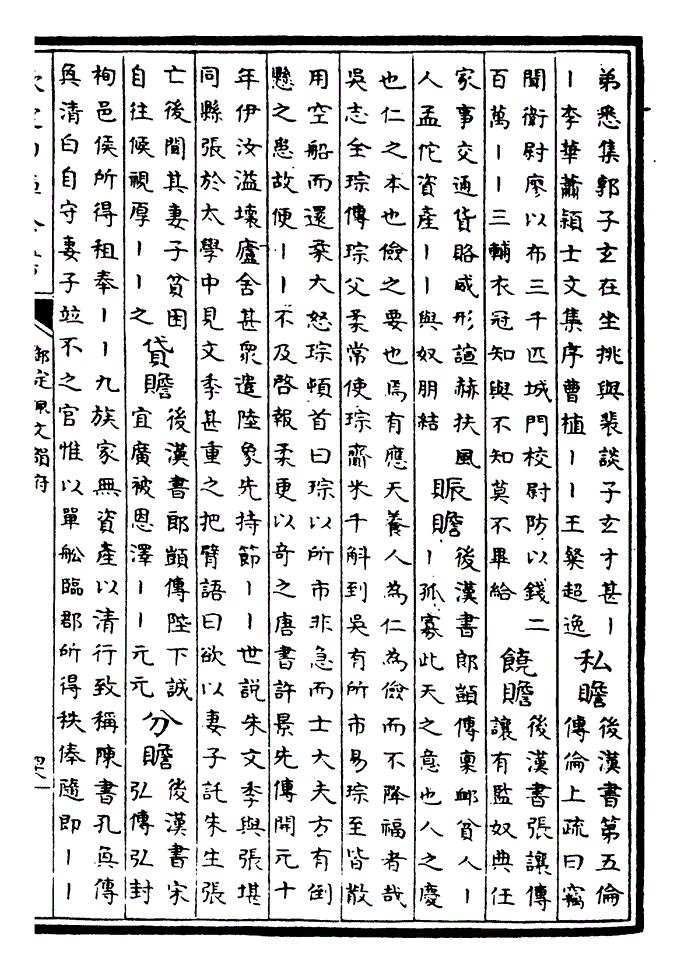 弟悉集郭子玄在坐挑與裴談子玄才甚丨
丨李華蕭穎士文集序曹植丨丨王粲超逸
私贍
後漢書第五倫
傳倫上疏曰竊
聞衛尉廖以布三千匹城門校尉防以錢二
百萬丨丨三輔衣冠知與不知莫不畢給
饒贍
後漢書張讓傳
讓有監奴典任
家事交通貨賂威形諠赫扶風
人孟佗資產丨丨與奴朋結
賑贍
後漢書郎顗傳稟卹貧人丨
丨孤寡此天之意也人之慶
也仁之本也儉之要也焉有應天養人為仁為儉而不降福者哉
吳志全琮傳琮父柔常使琮齎米千斛到吳有所市易琮至皆散
用空船而還柔大怒琮頓首曰琮以所市非急而士大夫方有倒
懸之患故便丨丨不及啓報柔更以奇之唐書許景先傳開元十
年伊汝溢壞廬舍甚衆遣陸象先持節丨丨世說朱文季與張堪
同縣張於太學中見文季甚重之把臂語曰欲以妻子託朱生張
亡後聞其妻子貧困
自往候視厚丨丨之
貸贍
後漢書郎顗傳陛下誠
宜廣被恩澤丨丨元元
分贍
後漢書宋
弘傳弘封
栒邑侯所得租奉丨丨九族家無資產以清行致稱陳書孔奐傳
奐清白自守妻子竝不之官惟以單舩臨郡所得秩俸隨即丨丨
御定佩文韻府